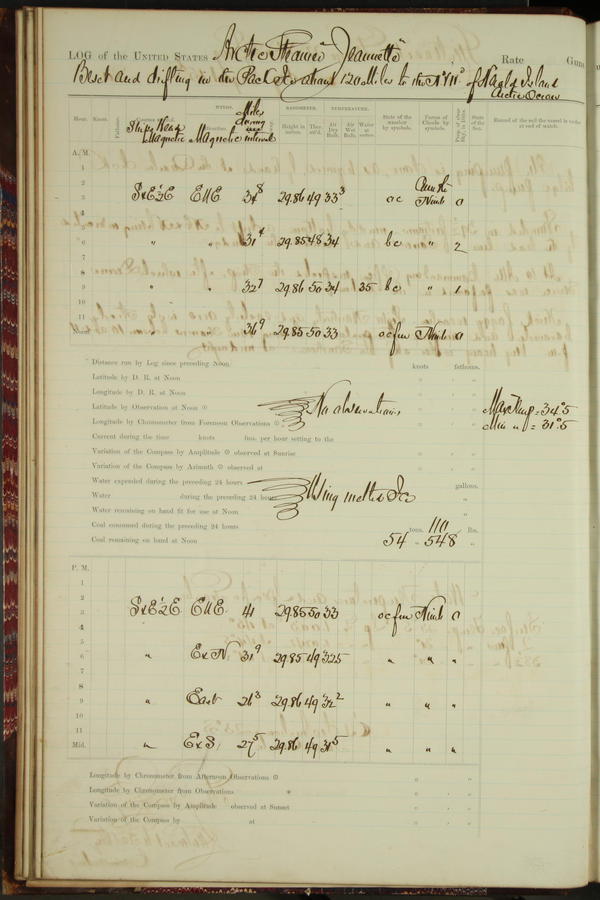 LOG of the UNITED STATES Arctic Steamer Jeannette Rate Guns
Beset and drifting in the Pack Ice about 120 Miles to the N'W'd of Herald Island
Arctic Ocean
WINDS. BAROMETER. TEMPERATURE.
Hour. Knots. Fathoms. Ship's Head Magnetic Magnetic Miles during interval Height in inches. Ther. att'd. Air Dry Bulb. Air Wet Bulb. Water at surface. State of the weather by symbols. Forms of Clouds by symbols. Prop. of clear Sky, in 10ths. State of the Sea. Record of the sail the vessel is under at end of watch.
A. M.
1
2
3 SxE½E ENE 34⁸ 29.86 49 33³ oc Nimb 0
4
5
6 " " 31⁴ 29.85 48 34 bc " 2
7
8
9 " " 32⁷ 29.86 50 34 35 bc " 1
10
11
Noon " 36⁹ 29.85 50 33 ocfm Nimb 0
Distance run by Log since preceding Noon, knots fathoms.
Latitude by D. R. at Noon
Longitude by D. R. at Noon
Latitude by Observation at Noon ☉ No observations Max Temp = 34°5
Longitude by Chronometer from Forenoon Observations ☉ Min " = 31°5
Current during the time knots fms. per hour setting to the
Variation of the Compass by Amplitude ☉ observed at Sunrise
Variation of the Compass by Azimuth ☉ observed at
Water expended during the preceding 24 hours gallons.
Water during the preceding 24 hours Using melted Ice "
Water remaining on hand fit for use at Noon "
Coal consumed during the preceding 24 hours tons, 110 lbs.
Coal remaining on hand at Noon 54 " 548 "
P. M.
1
2
3 SxE½E ENE 41 29.85 50 33 ocfm Nimb 0
4
5
6 " ExN 31⁹ 29.85 49 32.5 " " "
7
8
9 " East 26³ 29.86 49 32² " " "
10
11
Mid. " ExS 27⁵ 29.86 49 31⁵ " " "
Longitude by Chronometer from Afternoon Observations ☉
Longitude by Chronometer from Observations *
Variation of the Compass by Amplitude observed at Sunset
Variation of the Compass by at